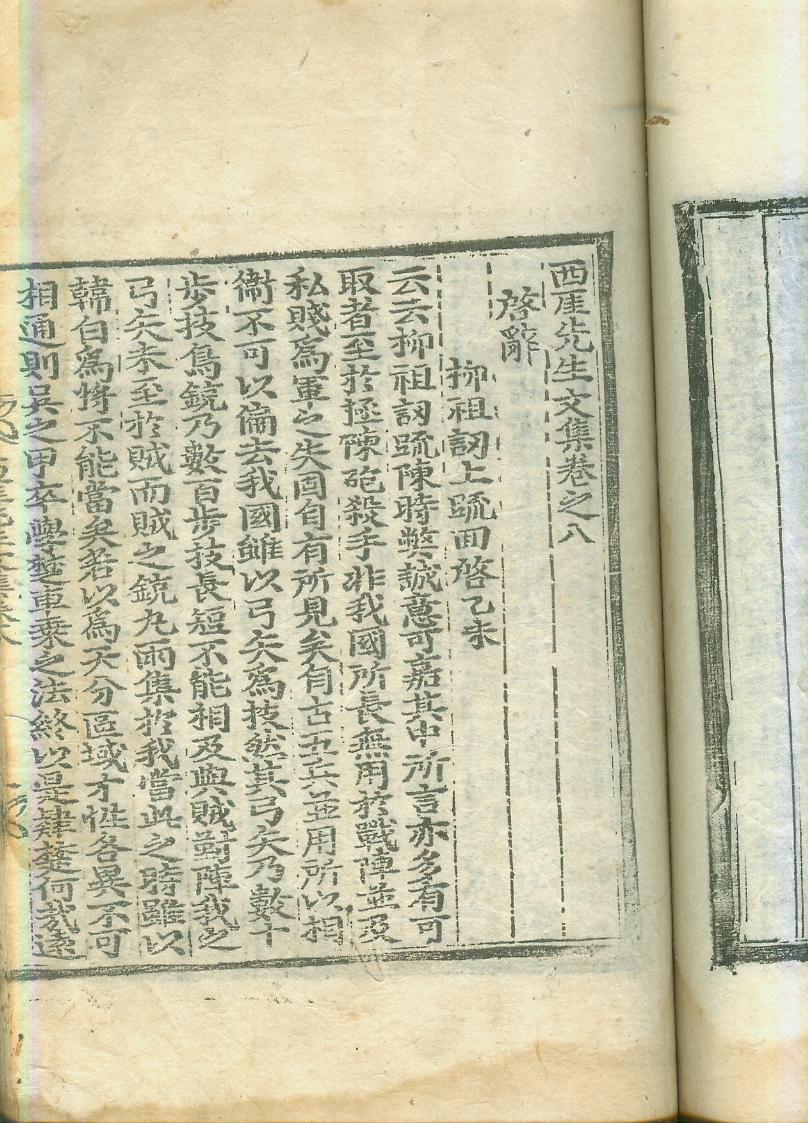 西厓先生文集卷之八
啓辭
柳祖訒上疏回啓乙未
云云柳祖訒疏陳時弊誠意可嘉其中所言亦多有可
取者至於極陳砲殺手非我國所長無用於戰陣並及
私賤爲軍之失固自有所見矣自古五兵並用所以相
衛不可以偏去我國雖以弓矢爲技然其弓矢乃數十
步技鳥銃乃數百步技長短不能相及與賊對陣我之
弓矢未至於賊而賊之銃丸雨集於我當此之時雖以
韓白爲將不能當矣若以爲天分區域才性各異不可
相通則吳之甲卒學楚車乘之法終以是肄楚何哉遠